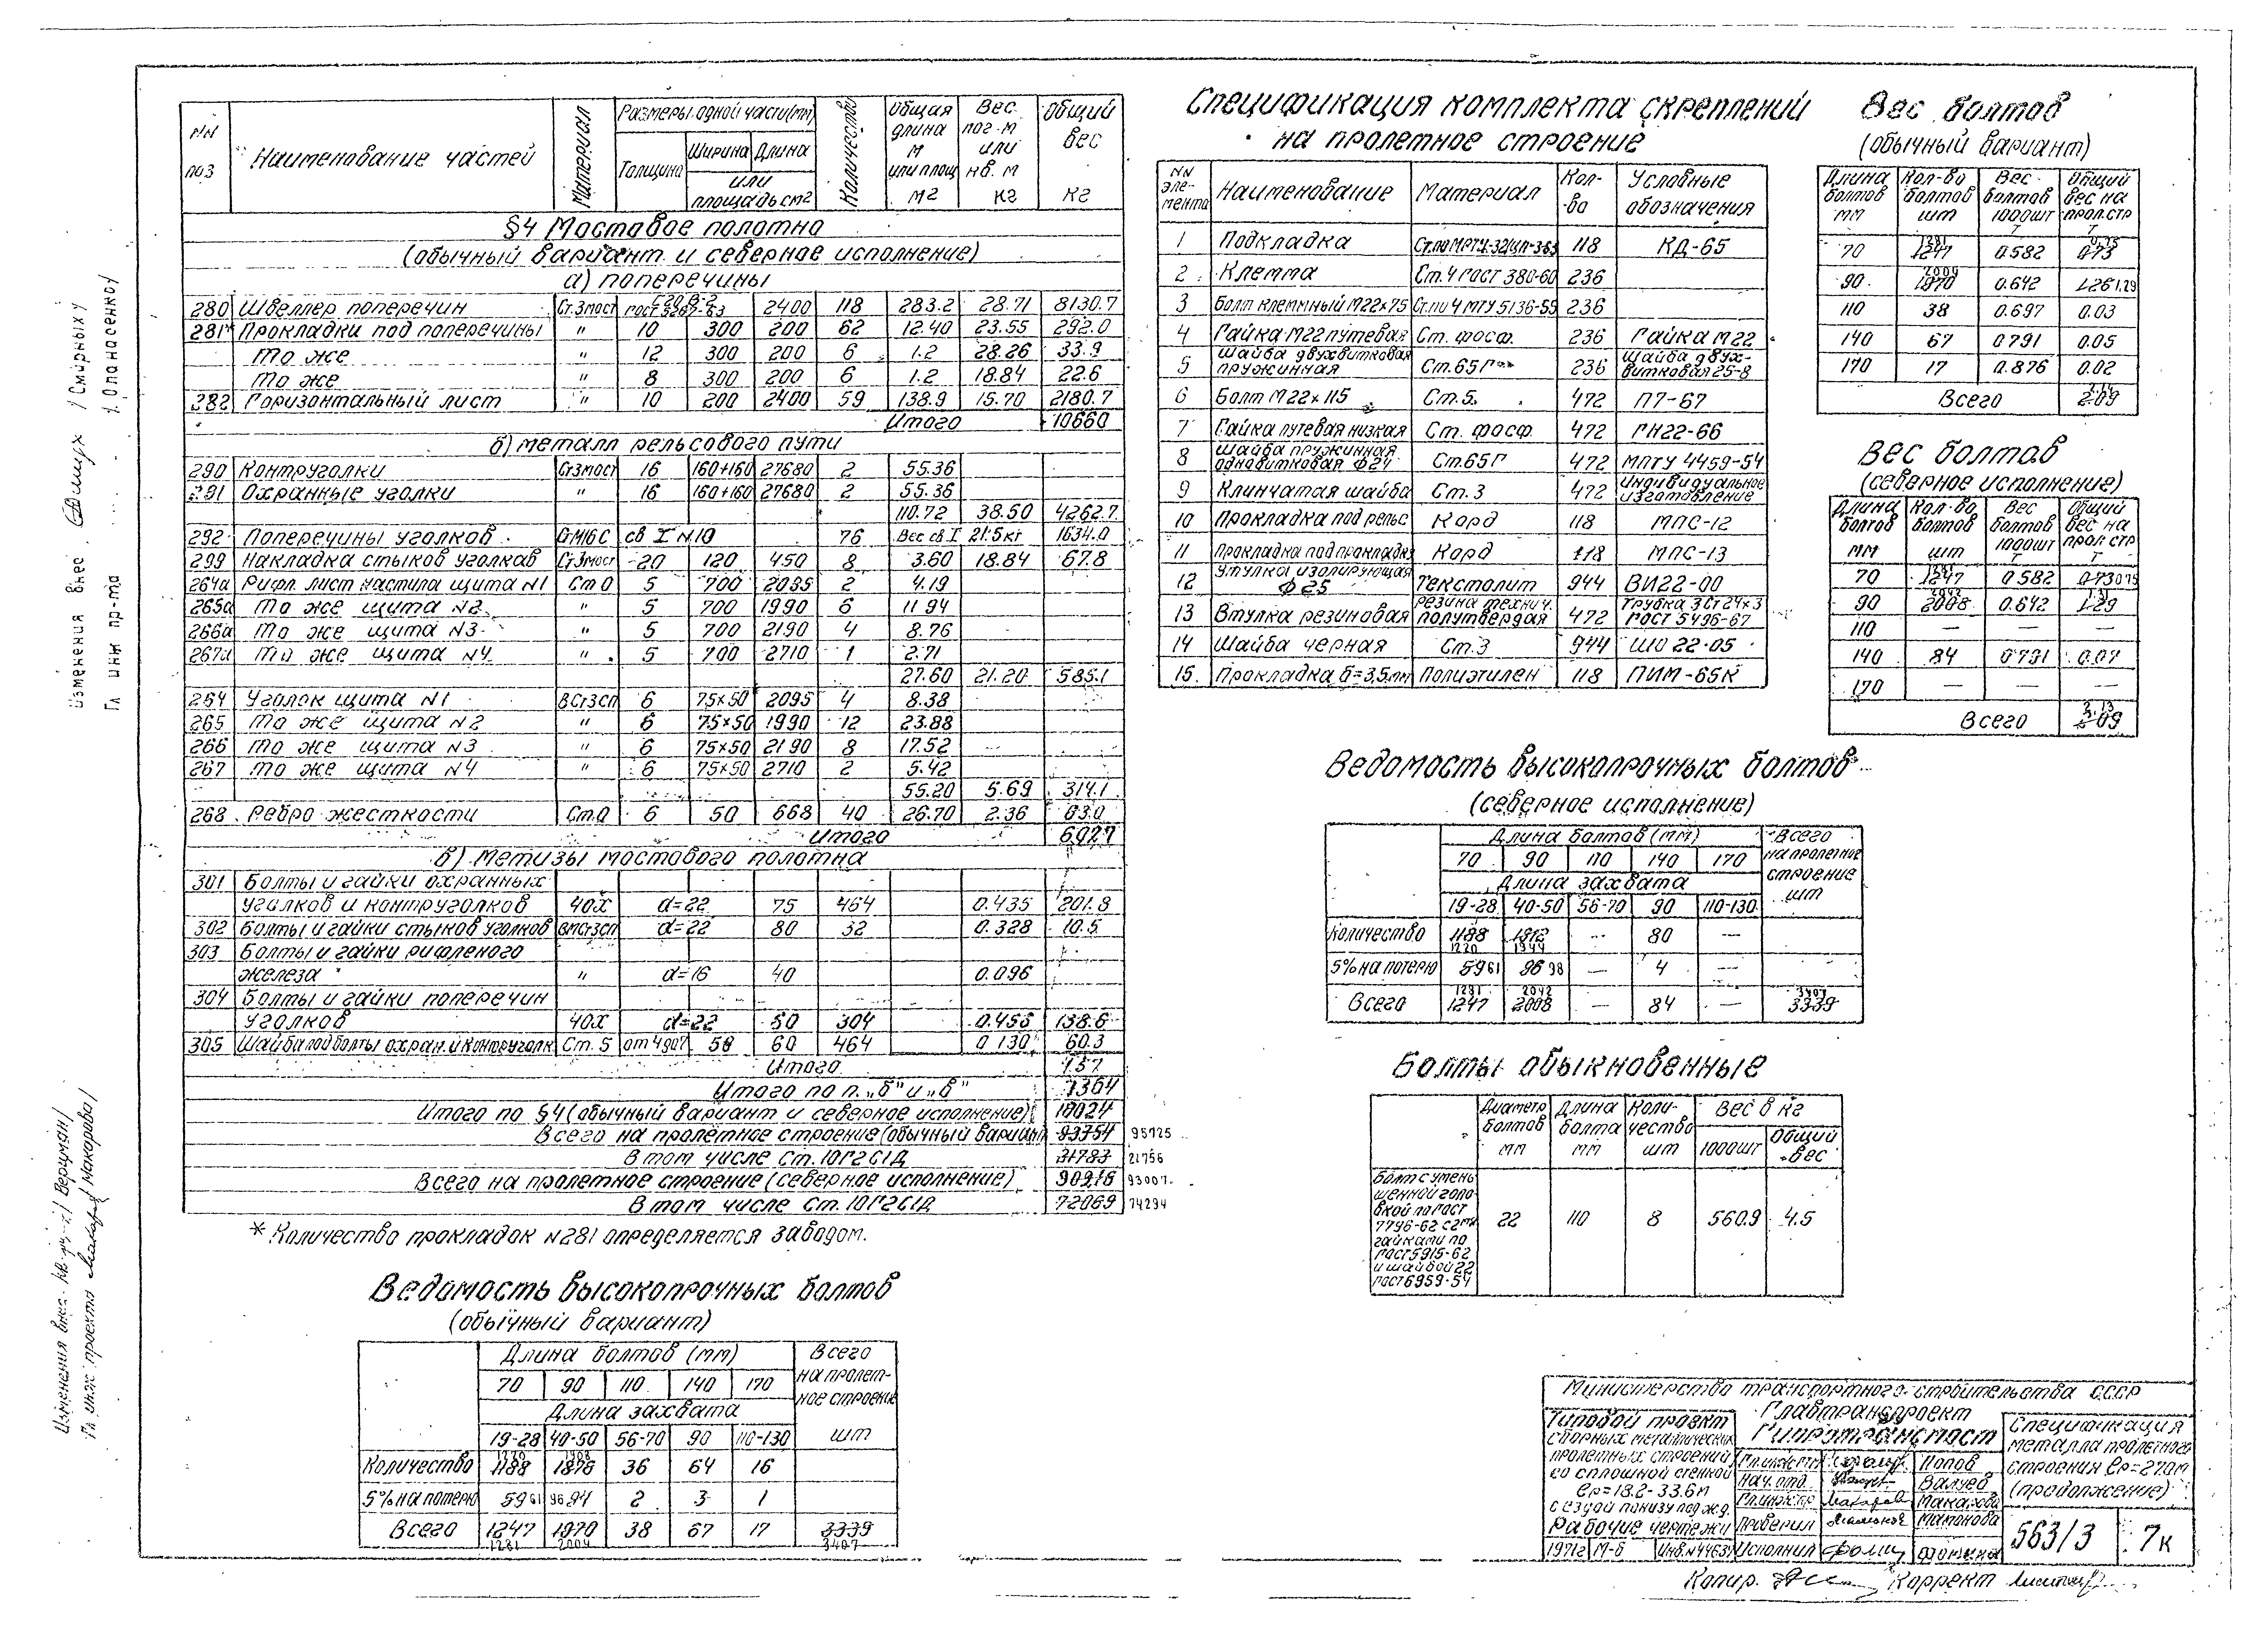 NN поз | Наименование частей | Материал | Размеры одной части(мм) | Количество | Общая длина м или площ м2 | Вес пог.м или кв.м кг | Общий вес кг
Толщина | Ширина | Длина
или площадь см2
§4 Мостовое полотно
(обычный вариант и северное исполнение)
а) поперечины
280 Швеллер поперечин Ст.3мост ГОСТ 5267-63 2400 118 283.2 28.71 8130.7
281* Прокладки под поперечины " 10 300 200 62 12.40 23.55 292.0
То же " 12 300 200 6 1.2 28.26 33.9
То же " 8 300 200 6 1.2 18.84 22.6
282 Горизонтальный лист " 10 200 2400 59 138.9 15.70 2180.7
Итого 10660
б) металл рельсового пути
290 Контруголки Ст3мост 16 160+160 27680 2 55.36
291 Охранные уголки " 16 160+160 27680 2 55.36
110.72 38.50 4262.7
292 Поперечины уголков СтМ16С св I N10 76 Вес св I 21.5кг 1634.0
299 Накладка стыков уголков Ст3мост 20 120 450 8 3.60 18.84 67.8
264а Рифл. лист настила щита N1 Ст 0 5 700 2095 2 4.19
265а То же щита N2 " 5 700 1990 6 11 94
266а То же щита N3 " 5 700 2190 4 8.76
267а То же щита N4 " 5 700 2710 1 2.71
27.60 21.20 585.1
264 Уголок щита N1 ВСт3сп 6 75×50 2095 4 8.38
265 То же щита N2 " 6 75×50 1990 12 23.88
266 То же щита N3 " 6 75×50 2190 8 17.52
267 То же щита N4 " 6 75×50 2710 2 5.42
55.20 5.69 314.1
268 Ребро жесткости Ст.0 6 50 668 40 26.70 2.36 63.0
Итого 6927
в) Метизы мостового полотна
301 Болты и гайки охранных
уголков и контруголков 40Х d=22 75 464 0.435 201.8
302 Болты и гайки стыков уголков ВМСт3сп d=22 80 32 0.328 10.5
303 Болты и гайки рифленого
железа " d=16 40 0.096
304 Болты и гайки поперечин
уголков 40Х d=22 50 304 0.456 138.6
305 Шайба под болты охран. и контруголк Ст. 5 58 60 464 0 130 60.3
Итого 437
Итого по п. „б" и „в" 7364
Итого по §4 (обычный вариант и северное исполнение) 18024
Всего на пролетное строение (обычный вариант 93754 95725
В том числе Ст. 10Г2С1Д 31783 21756
Всего на пролетное строение (северное исполнение) 90916 93007
В том числе Ст. 10Г2С1Д 72069 74294
* Количество прокладок N281 определяется заводом.
Ведомость высокопрочных болтов
(обычный вариант)
Длина болтов (мм) Всего на пролетное строение шт
70 90 110 140 170
Длина захвата
19-28 40-50 56-70 90 110-130
1220 1908
Количество 1188 1876 36 64 16
5% на потерю 59 61 96 94 2 3 1
Всего 1247 1970 38 67 17 3339
1281 2004 3407
Спецификация комплекта скреплений
на пролетное строение
NN элемента Наименование Материал Кол-во Условные обозначения
1 Подкладка 118 КД-65
2 Клемма Ст. 4 ГОСТ 380-60 236
3 Болт клеммный М22×75 Ст. по ЧМТУ 5136-55 236
4 Гайка М22 путевая Ст. фосф. 236 Гайка М22
5 Шайба двухвитковая пружинная Ст. 65Г 236 Шайба двухвитковая 25-8
6 Болт М22×115 Ст. 5. 472 П7-67
7 Гайка путевая низкая Ст. фосф. 472 ГН22-66
8 Шайба пружинная одновитковая Ф24 Ст. 65Г 472 МПТУ 4459-54
9 Клинчатая шайба Ст. 3 472 Индивидуальное изготовление
10 Прокладка под рельс Корд 118 МПС-12
11 Прокладка под прокладк Корд 118 МПС-13
12 Втулка изолирующая Ф25 Текстолит 944 ВИ22-00
13 Втулка резиновая Резина технич. полутвердая 472 Трубка 3Ст24×3 ГОСТ 5496-67
14 Шайба черная Ст.3 944 ШО 22-05
15. Прокладка б=3,5мм Полиэтилен 118 ПИМ-65К
Вес болтов
(обычный вариант)
Длина болтов мм Кол-во болтов шт Вес болтов 1000шт т Общий вес на прол.стр т
70 1247 1281 0.582 0.73 0.75
90 1970 2004 0.642 1.26 1.29
110 38 0.697 0.03
140 67 0.791 0.05
170 17 0.876 0.02
Всего 2.09 2.14
Вес болтов
(северное исполнение)
Длина болтов мм Кол-во болтов шт Вес болтов 1000шт т Общий вес на прол.стр т
70 1247 1281 0 582 0.73 0.75
90 2008 2042 0.642 1.29 1.31
110 — — —
140 84 0.791 0.07
170 — — —
Всего 2.09 2.13
Ведомость высокопрочных болтов
(северное исполнение)
Длина болтов (мм) Всего на пролетное строение шт
70 90 110 140 170
Длина захвата
19-28 40-50 56-70 90 110-130
Количество 1188 1912 — 80 —
1220 1944
5% на потерю 59 61 96 98 — 4 —
1281 2042 3407
Всего 1247 2008 — 84 — 3339
Болты обыкновенные
Диаметр болтов мм Длина болта мм Количество шт Вес в кг
1000шт Общий вес
Болт с уменьшенной головкой по ГОСТ 7796-62 с 2мя гайками по ГОСТ 5915-62 и шайбой 22 ГОСТ 6959-54 22 110 8 560.9 4.5
Министерство транспортного строительства СССР
Главтранспроект
Гипротрансмост
Типовой проект
сборных металлических
пролетных строений
со сплошной стенкой
ℓр=18.2-33.6м
с ездой понизу под ж.д.
Рабочие чертежи
1971г М-б Инв.N 44637
Попов
Нач. отд. Валуев
Макарова
Проверил Мамонова
Исполнил Фомина
Спецификация
металла пролетного
строения ℓр=27.0м
(продолжение)
563/3 7к
Копир. Коррект
Изменения внес /Смирных/
Гл инж пр-та /Опанасенко/
Изменения внес. /Верцман/
Гл. инж. проекта /Макарова/